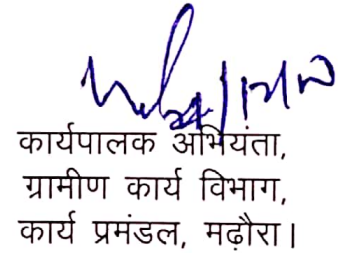 कार्यपालक अभियंता,
ग्रामीण कार्य विभाग,
कार्य प्रमंडल, मढ़ौरा।